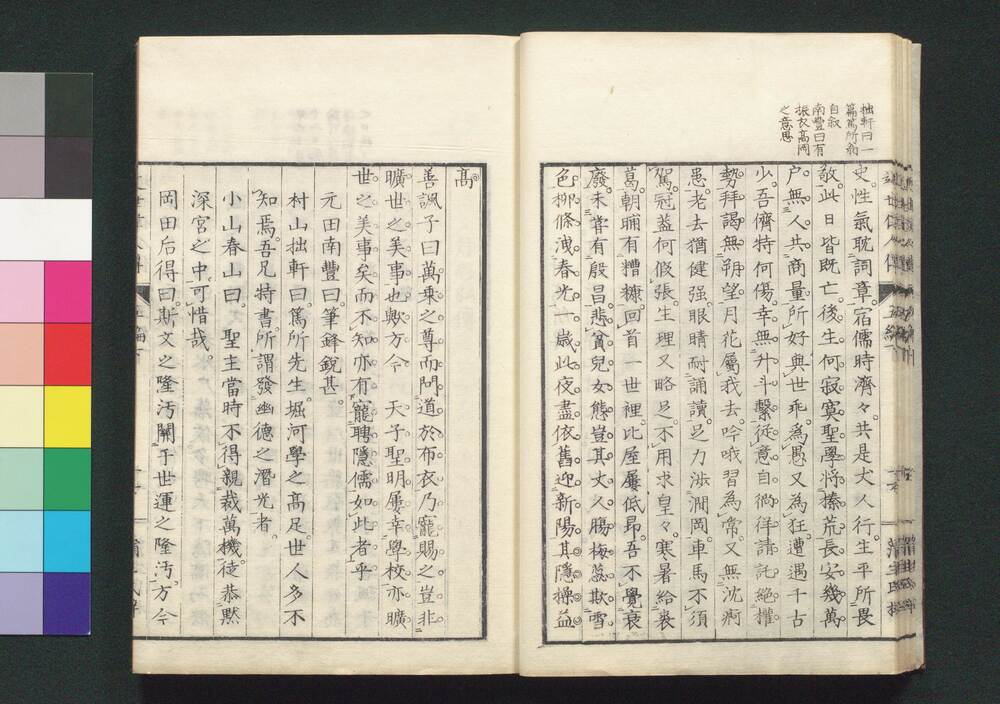 拙軒曰一
篇篤所翁
自敘
南豐曰有
振衣高岡
之意思
史性氣耽詞章宿儒時濟々共是大人行生平所畏
敬此日皆既亡後生何寂寞聖學將榛荒長安幾萬
戶無人共商量所好與世乖為愚又為狂遭遇千古
少吾儕特何傷幸無升斗繫從意自徜徉請託絕權
勢拜謁無朔望月花屬我去吟哦習為常又無沈痾
患老去猶健强眼睛耐誦讀足力涉澗岡車馬不須
駕冠蓋何假張生理又略足不用求皇々寒暑給裘
葛朝晡有糟糠回首一世裡比屋屢低昂吾不覺衰
廢未嘗有殷昌悲貧兒女態豈其丈人腸梅蕊欺雪
色柳條洩春光一歲此夜盡依舊迎新陽其隱操益
高
善諷子曰萬乘之尊而問道於布衣乃寵賜之豈非
曠世之美事也歟方今 天子聖明屢幸學校亦曠
世之美事矣而不知亦有寵聘隱儒如此者乎
元田南豐曰筆鋒銳甚
村山拙軒曰篤所先生堀河學之高足世人多不
知焉吾兄特書所謂發幽德之潛光者
小山春山曰 聖主當時不得親裁萬機徒恭默
深宮之中可惜哉
岡田后得曰斯文之隆汚關于世運之隆汚方今